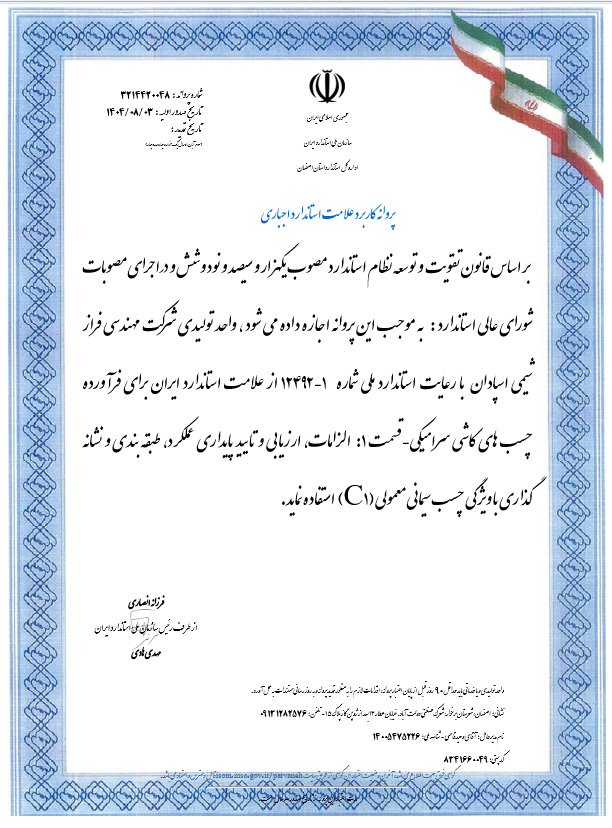 جمهوری اسلامی ایران
سازمان ملی استاندارد ایران
اداره کل استاندارد استان اصفهان
شماره پروانه: ۳۲۱۴۴۲۰۰۴۸
تاریخ صدور اولیه: ۱۴۰۴/۰۸/۰۳
تاریخ تمدید:
پروانه کاربرد علامت استاندارد اجباری
بر اساس قانون تقویت و توسعه نظام استاندارد مصوب یکهزار و سیصد و نود و شش و در اجرای مصوبات
شورای عالی استاندارد: به موجب این پروانه اجازه داده می شود، واحد تولیدی شرکت مهندسی فراز
شیمی اسپادان با رعایت استاندارد ملی شماره ۱-۱۲۴۹۲ از علامت استاندارد ایران برای فرآورده
چسب های کاشی سرامیکی-قسمت ۱: الزامات، ارزیابی و تایید پایداری عملکرد، طبقه بندی و نشانه
گذاری با ویژگی چسب سیمانی معمولی (C۱) استفاده نماید.
فرزانه انصاری
از طرف رئیس سازمان ملی استاندارد ایران
مهدی هادی
واحد تولیدی و یا خدماتی باید حداقل ۹۰ روز قبل از پایان اعتبار پروانه، اقدامات لازم را به منظور تمدید پروانه و به روز رسانی مستندات به عمل آورد.
نشانی: اصفهان، شهرستان برخوار، شهرک صنعتی دولت آباد، خیابان عطار ۱۲ -پلاک ۱۵- تلفن: ۰۹۱۳۱۲۸۲۵۷۶
نام مدیرعامل: آقای وحید قاسمی - شناسه ملی: ۱۴۰۰۵۴۷۵۲۲۶
کد پستی: ۸۳۴۱۶۶۰۰۴۹
isom.inso.gov.ir/parvaneh